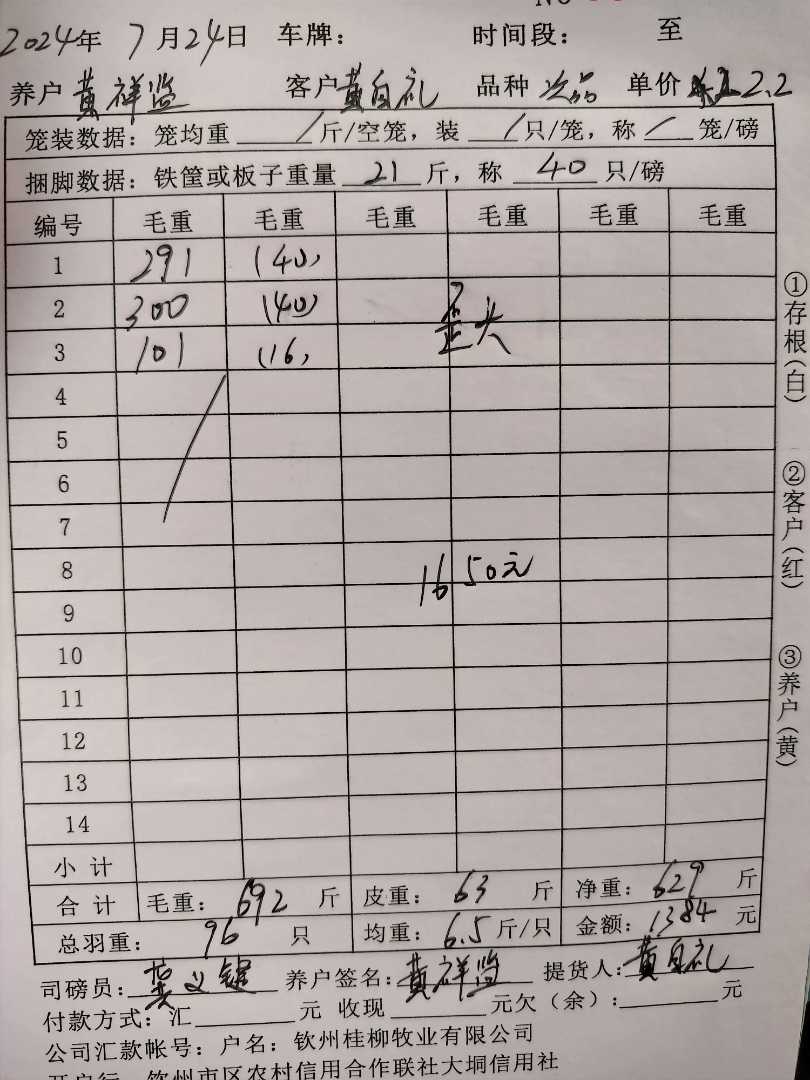 2024年 7月24日 车牌： 时间段： 至
养户 黄祥监 客户 黄自礼 品种 次品 单价 2.2
笼装数据：笼均重 / 斤/空笼，装 / 只/笼，称 / 笼/磅
捆脚数据：铁筐或板子重量 21 斤，称 40 只/磅
编号 毛重 毛重 毛重 毛重 毛重 毛重
1 291 (40)
2 300 (40) 歪头
3 101 (16)
4
5
6
7
8 1650元
9
10
11
12
13
14
小计
合计 毛重： 692 斤 皮重： 63 斤 净重： 629 斤
总羽重： 96 只 均重： 6.5 斤/只 金额： 1384 元
司磅员： 黄义 养户签名： 黄祥监 提货人： 黄自礼
付款方式：汇 元 收现 元欠（余）： 元
公司汇款帐号：户名：钦州桂柳牧业有限公司
开户行 钦州市区农村信用合作联社大垌信用社
①存根(白)
②客户(红)
③养户(黄)